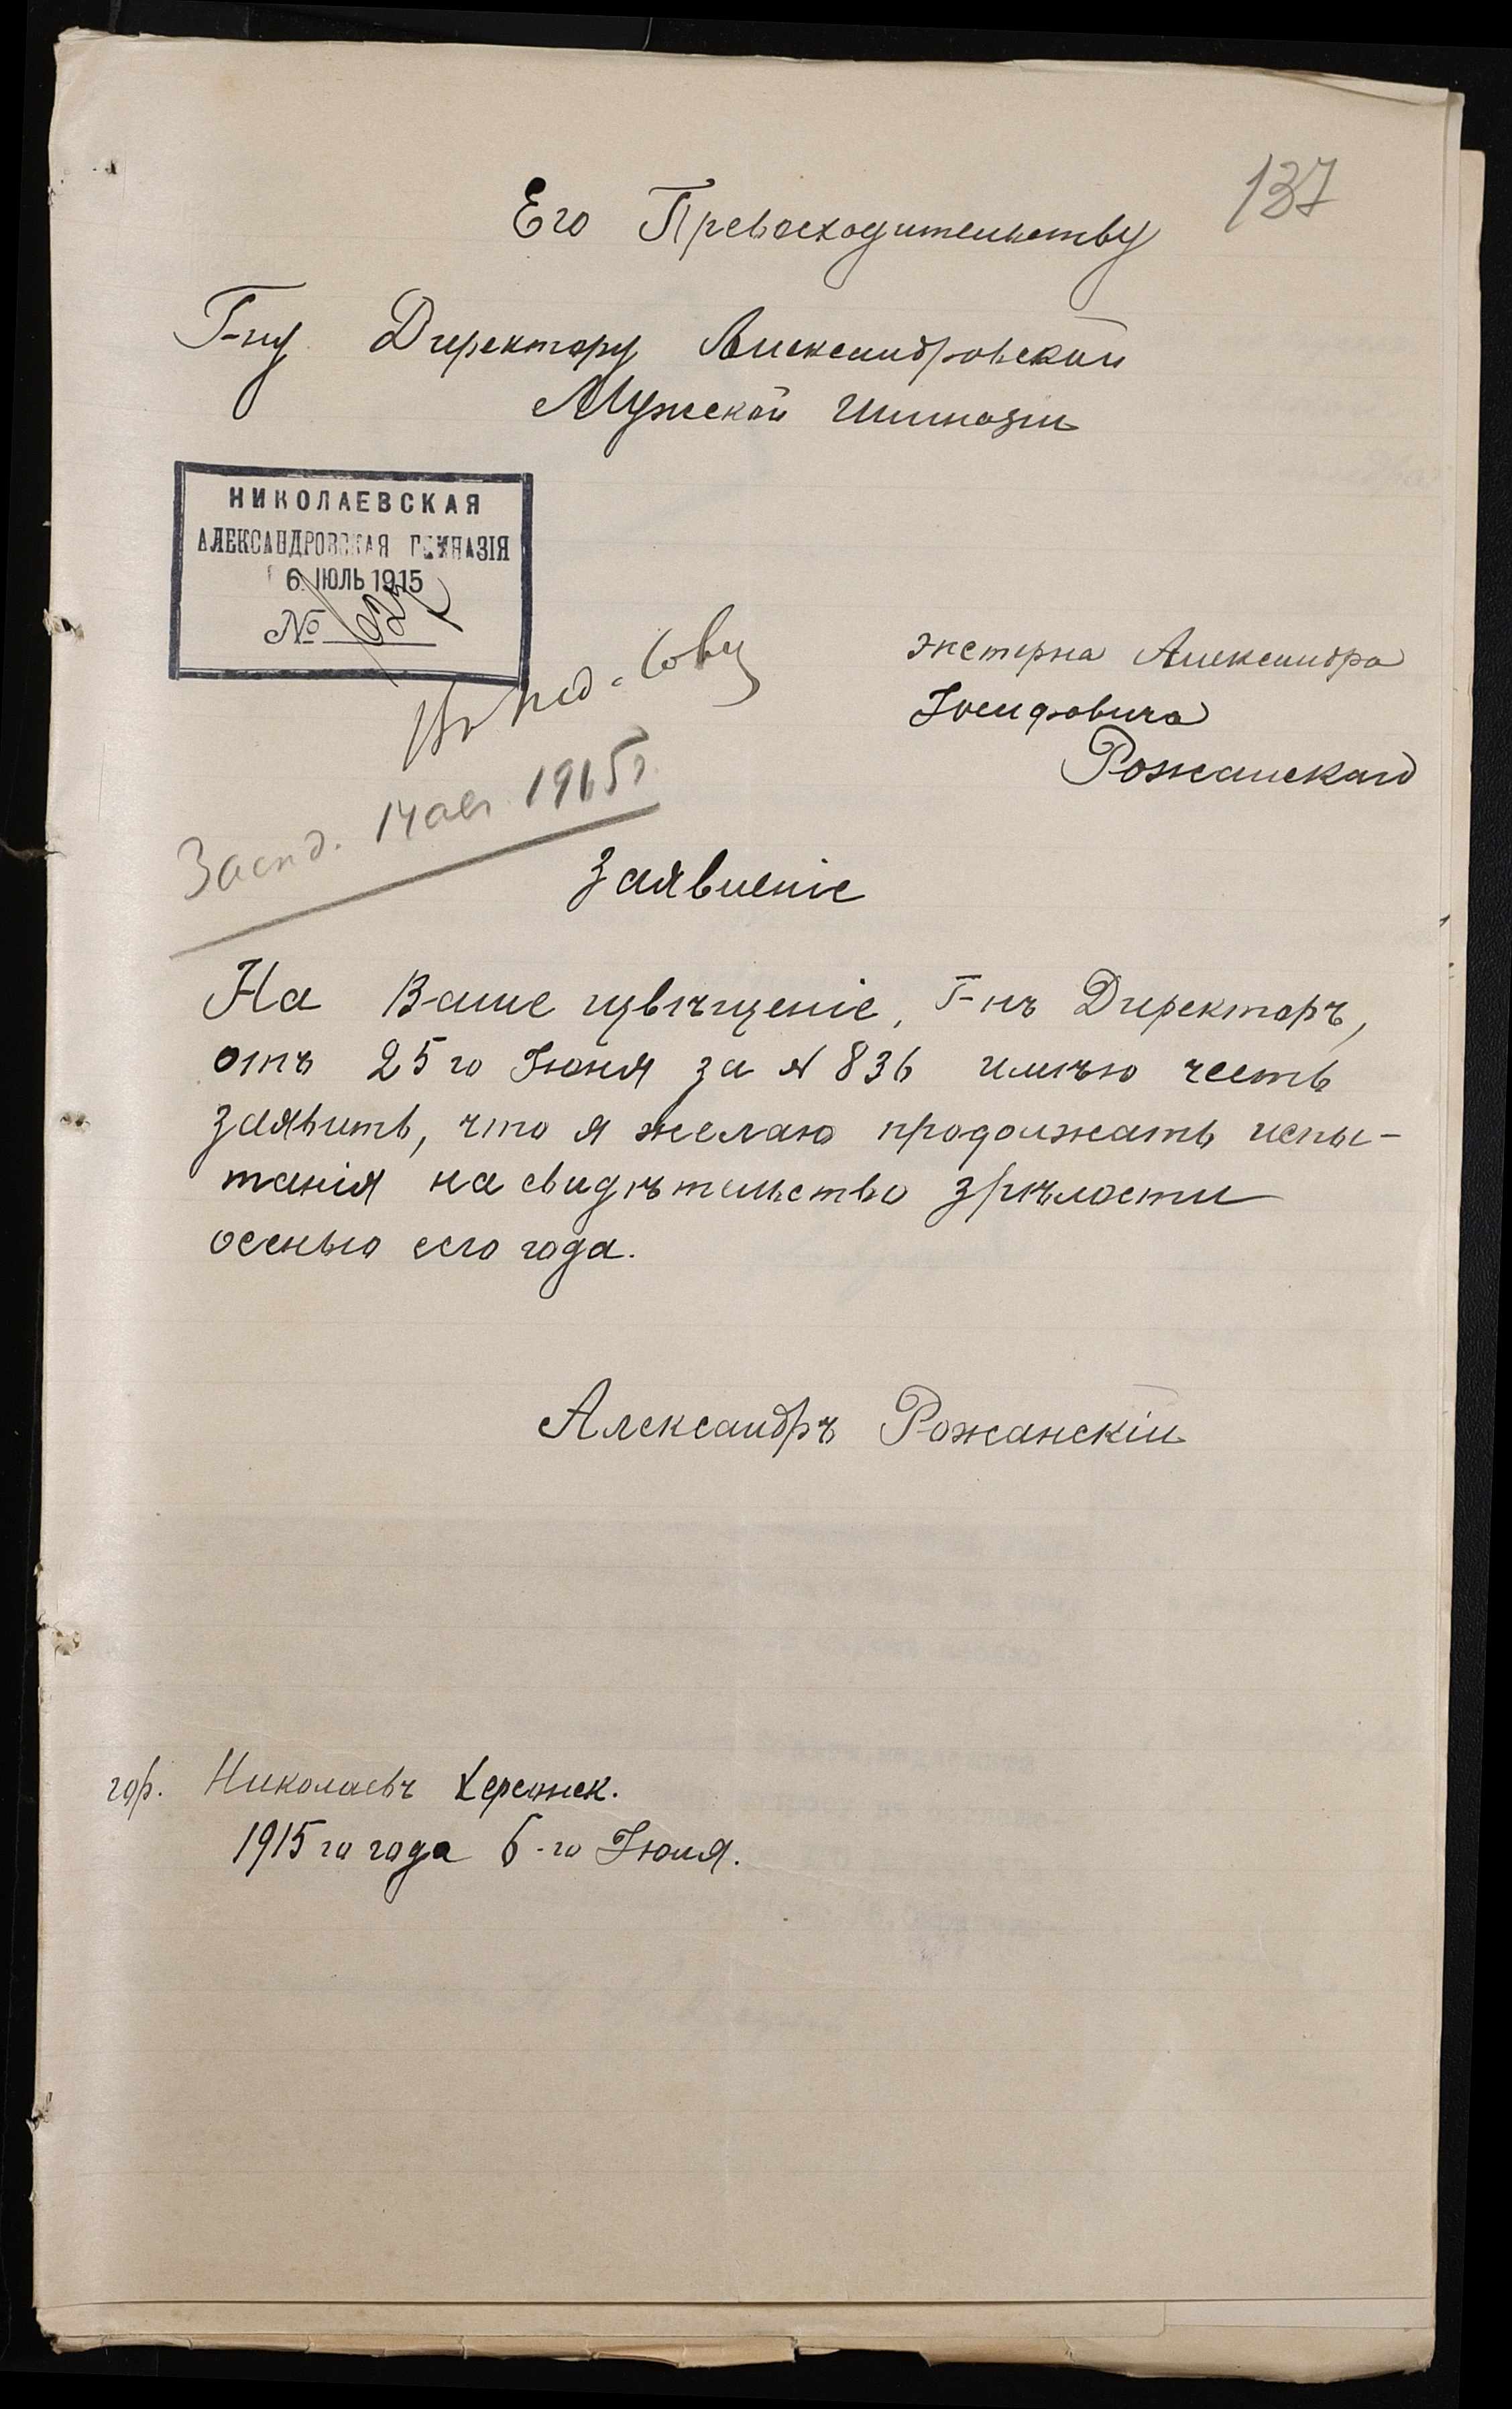 137
Его Превосходительству
Г-ну Директору Александровской
Мужской Гимназіи
НИКОЛАЕВСКАЯ
АЛЕКСАНДРОВСКАЯ ГИМНАЗІЯ
6 ІЮЛЬ 1915
№
Въ пед. Сов
экстерна Александра
Іосифовича
Рожанскаго
Засѣд. 14 авг. 1915 г.
Заявленіе
На Ваше извѣщеніе, Г-нъ Директоръ,
отъ 25 го Іюня за № 836 имѣю честь
заявить, что я желаю продолжать испы-
танія на свидѣтельство зрѣлости
осенью сего года.
Александръ Рожанскій
гор. Николаевъ Херсонск.
1915 го года 6-го Іюля.